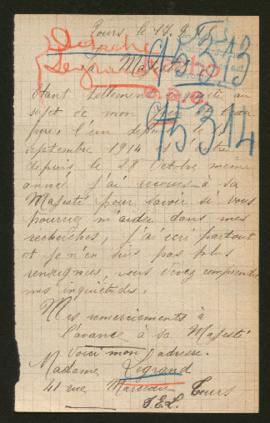 Tours, le 17. 2. 15
Detaché
Legrand
95313
95314
A Sa Majesté
Etant tellement inquiète au
sujet de mon et de mon
frère, l'un depuis le
septembre 1914 et l'autre
depuis le 28 Octobre même
année. J'ai recours à sa
Majesté pour savoir si vous
pourriez m'aider dans mes
recherches, j'ai écri partout
et je n'en suis pas plus
renseignée, vous devez comprendre
mes inquiétudes.
Mes remerciements à
l'avance à sa Majesté
Voici mon adresse.
Madame Legrand
41 rue Tours
I.E.L.